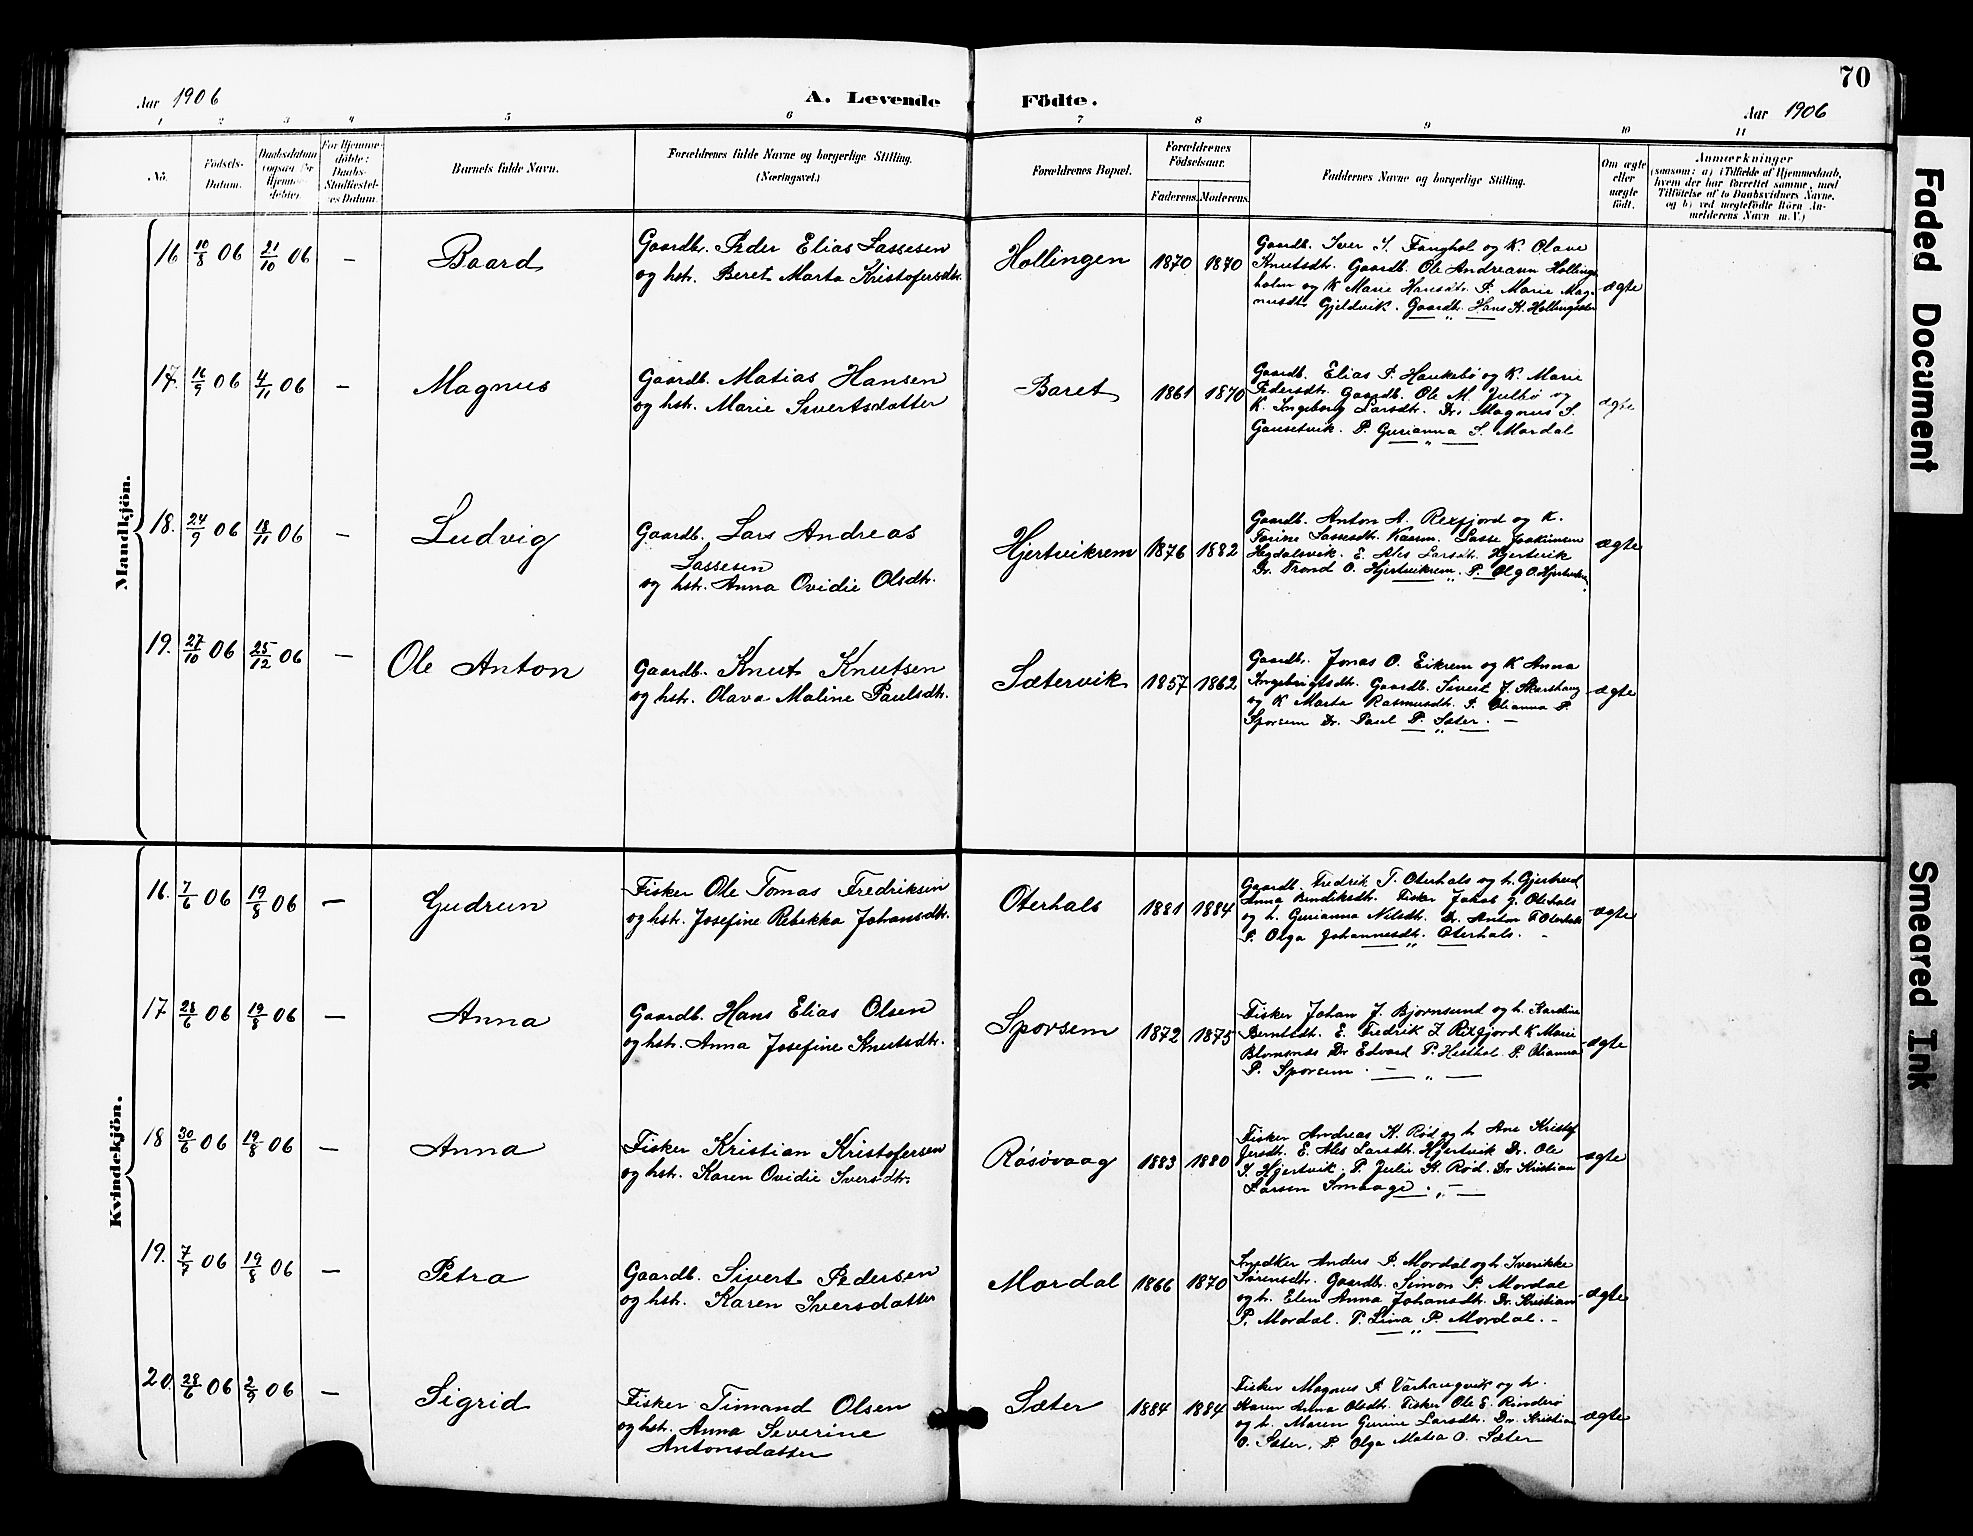 70
Aar 1906
A. Levende
Födte.
Aar 1906
1 2 3 4 5 6 7 8 9 10 11
No.
Födsels-Datum.
Daabsdatum (ogsaa for Hjemme-döbte).
For Hjemme-döbte: Daabs-Stadfæstel-ses Datum.
Barnets fulde Navn.
Forældrenes fulde Navne og borgerlige Stilling.
(Næringsvei.)
Forældrenes Bopæl.
Forældrenes Födselsaar.
Faderens.
Moderens.
Faddernes Navne og borgerlige Stilling.
Om ægte eller uægte födt.
Anmærkninger
(saasom: a) i Tilfælde af Hjemmedaab, hvem der har forrettet samme, med Tilföielse af to Daabsvidners Navne, og b) ved uægtefödte Börn An-melderens Navn m. V.)
Mandkjön.
16 10/8 06 21/10 06 – Baard
Gaardb. Peder Elias Lassesen
og hstr. Beret Marta Kristofersdtr.
Hollingen 1870 1870
Gaardb. Iver I. Fanghol og K. Olave
Knutsdtr. Gaardb. Ole Andreasen Hollings
holm og K Marie Hansdtr. P. Marie Mag-
nusdtr Gjeldvik. Gaardbr. Hans K. Hollingsholm
ægte
17. 16/9 06 4/11 06 – Magnus
Gaardb. Matias Hansen
og hstr. Marie Sivertsdatter
Baret 1861 1870
Gaardb. Elias P. Haukebø og K. Marie
Pedersdtr. Gaardb. Ole M. Julbø og
K. Ingeborg Larsdtr. Dr. Magnus S.
Gausetvik. P. Gurianna S. Mordal
ægte
18. 24/9 06 18/11 06 – Ludvig
Gaardb. Lars Andreas
Lassesen
og hstr. Anna Ovidie Olsdtr.
Hjertvikrem 1876 1882
Gaardb. Anton A. Rexfjord og K.
Lassesdtr. Lasse Joakimsen
Hegdalsvik. E. Ales Larsdtr. Hjertvik
Dr. Trond O. Hjertvikrem. P. Olg O. Hjertvikrem
ægte
19. 27/10 06 25/12 06 – Ole Anton
Gaardb. Knut Knutsen
og hstr. Olava Maline Paulsdtr.
Sætervik 1857 1862
Gaardb. Jonas O. Eikrem og K Anna
Ingebrigtsdtr. Gaardb. Sivert J. Skarshaug
og K Marta Rasmusdtr. P. Olianna P.
Sporsem Dr. Paul P. Sæter. –
ægte
Kvindekjön.
16. 7/6 06 19/8 06 – Gudrun
Fisker Ole Tomas Fredriksen
og hstr. Josefine Rebekka Johansdtr.
Oterhals 1881 1884
Gaardb. Fredrik T. Oterhals og h. Gjertrud
Anna Bendiksdtr. Fisker Johas G. Oterhals
og h. Gurianna Nilsdtr. Dr. Anton F. Oterhals
P. Olga Johannesdtr. Oterhals. –
ægte
17 28/6 06 19/8 06 – Anna
Gaardb. Hans Elias Olsen
og hstr. Anna Josefine Knutsdtr.
Sporsem 1872 1875
Fisker Johan J. Bjørnsund og h. Karoline
Berntsdtr. E. Fredrik J. Rexfjord K Marie
Blomsnes Dr Edvard P. Hesthol. P. Olianna
P. Sporsem. – „ –
ægte
18 30/6 06 19/8 06 – Anna
Fisker Kristian Kristofersen
og hstr. Karen Ovidie Iversdtr.
Røsøvaag 1883 1880
Fisker Andreas K. Rød og h. Ane Kristof
fersdtr. E. Ales Larsdtr. Hjertvik Dr. Ole
I. Hjertvik. P. Julie K. Rød. Dr. Kristian
Larsen Smaage. – „ –
ægte
19. 7/7 06 19/8 06 – Petra
Gaardb. Sivert Pedersen
og hstr. Karen Iversdatter
Mordal 1866 1870
Snedker Anders P. Mordal og h. Sverikke
Sørensdtr. Gaardb. Simon P. Mordal
og h. Elen Anna Johansdtr. Dr. Kristian
P. Mordal. P. Lina P. Mordal. –
ægte
20. 28/6 06 2/9 06 – Sigrid
Fisker Timand Olsen
og hstr. Anna Severine
Antonsdatter
Sæter 1884 1884
Fisker Magnus P. Varhaugvik og h.
Karen Anna Olsdtr. Fisker Ole E. Rinderø
og h. Maren Gurine Larsdtr. Dr. Kristian
O. Sæter. P. Olga Matea O. Sæter
ægte
Faded Document
Smeared Ink